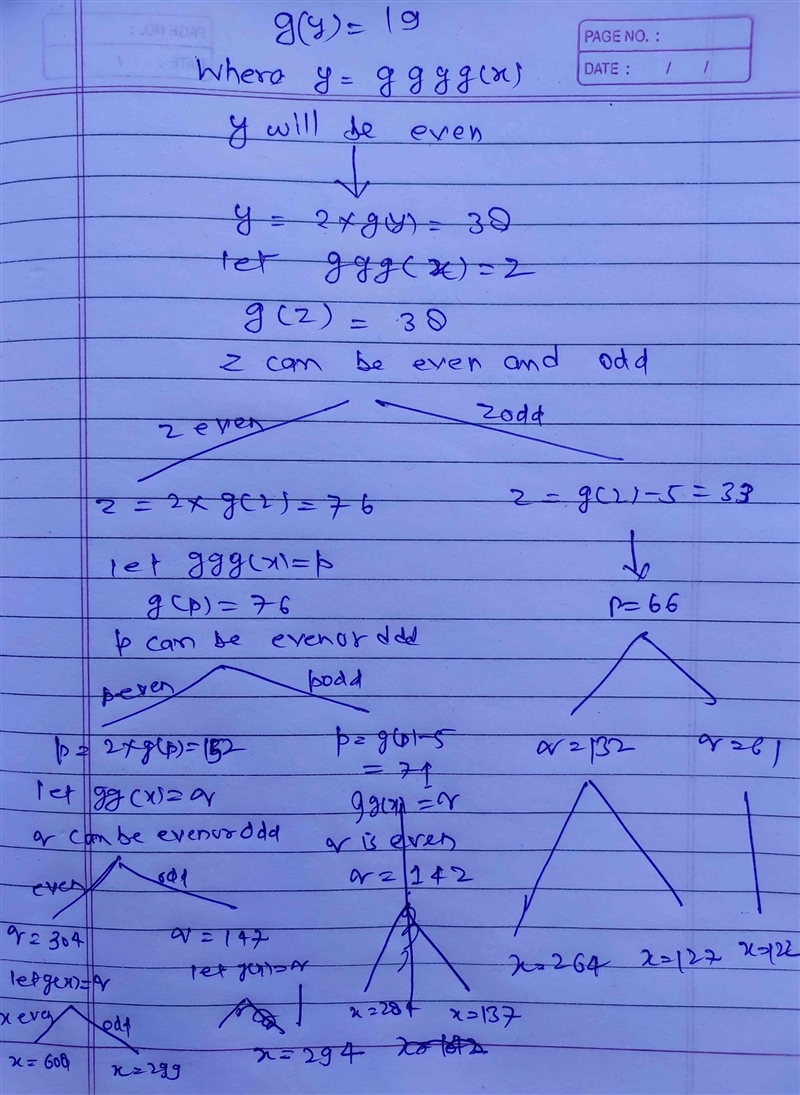 g(y) = 19
PAGE NO. :
DATE : / /
Where y = g g g g(x)
y will be even
y = 2 × g(y) = 38
let ggg(x) = z
g(z) = 38
z can be even and odd
z even
z odd
z = 2 × g(z) = 76
z = g(z) - 5 = 33
let ggg(x) = p
g(p) = 76
p = 66
p can be even or odd
p even
p odd
p = 2 × g(p) = 152
p = g(p) - 5
= 71
q = 132
q = 61
let gg(x) = q
gg(x) = q
q can be even or odd
q is even
q = 142
even
odd
q = 304
q = 147
let g(x) = q
let g(x) = q
x = 264
x = 127
x = 122
x even
odd
x = 284
x = 137
x = 608
x = 299
x = 294